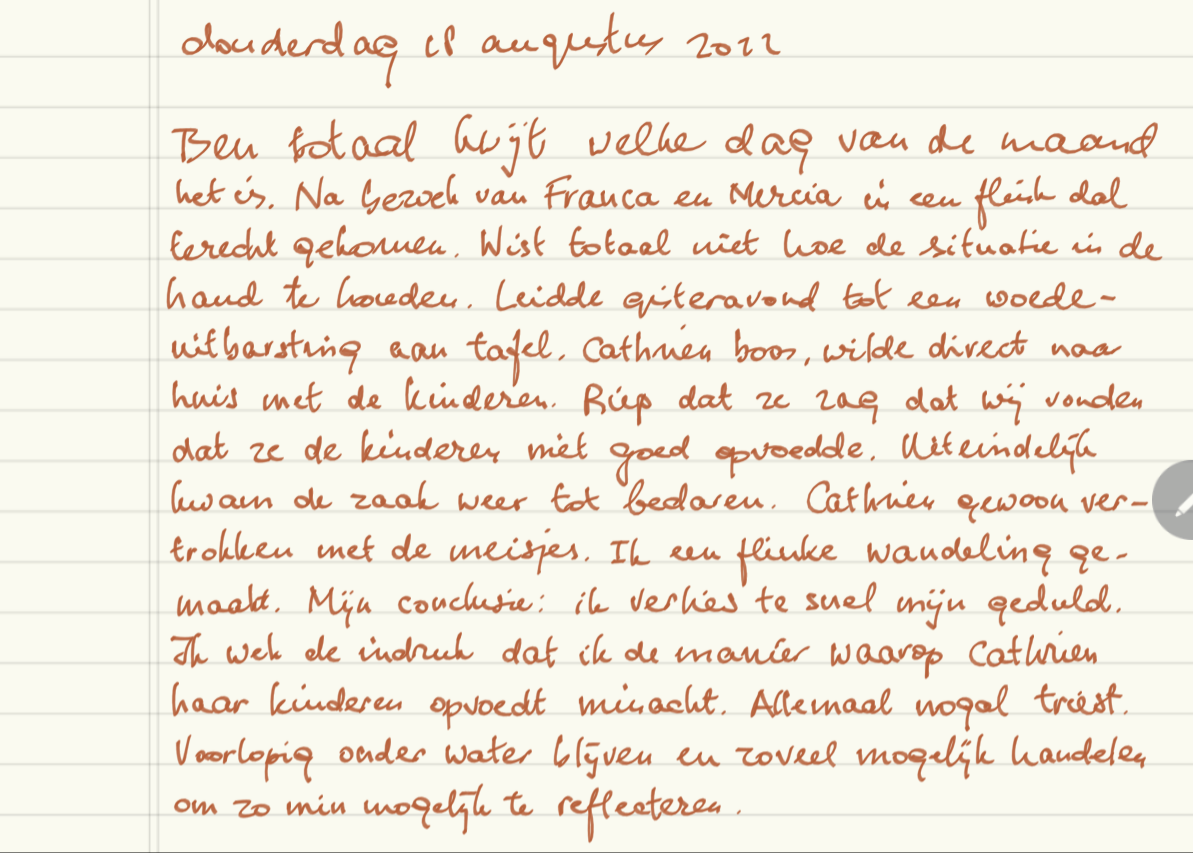 donderdag 18 augustus 2022
Ben totaal kwijt welke dag van de maand
het is. Na bezoek van Franca en Mercia in een flink dal
terecht gekomen. Wist totaal niet hoe de situatie in de
hand te houden. Leidde gisteravond tot een woede-
uitbarsting aan tafel. Cathrien boos, wilde direct naar
huis met de kinderen. Riep dat ze zag dat wij vonden
dat ze de kinderen niet goed opvoedde. Uiteindelijk
kwam de zaak weer tot bedaren. Cathrien gewoon ver-
trokken met de meisjes. Ik een flinke wandeling ge-
maakt. Mijn conclusie: ik verlies te snel mijn geduld.
Ik wek de indruk dat ik de manier waarop Cathrien
haar kinderen opvoedt minacht. Allemaal nogal triest.
Voorlopig onder water blijven en zoveel mogelijk handelen
om zo min mogelijk te reflecteren.